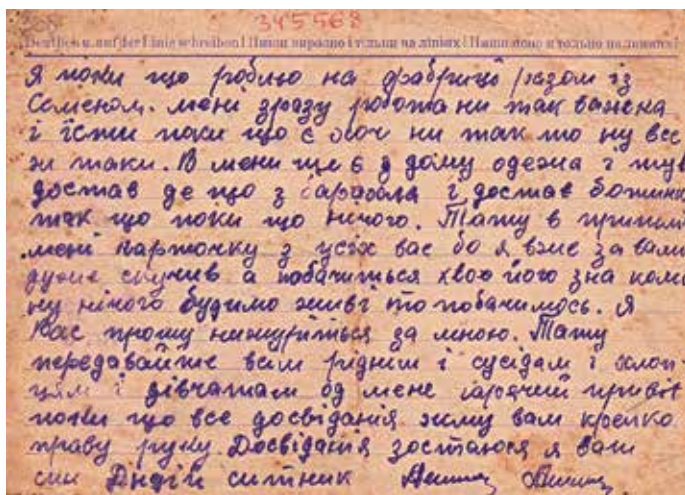 345568
Deutlich u. auf der Linie schreiben! Пиши виразно і тільки на лініях! Пиши ясно и только на линиях!
Я поки що роблю на фабриці разом із
Семеном. мені зразу робота ни так важка
і їсти поки що є хоч ни так то ну все
ж таки. В мени ще є з дому одежа і тут
достав де що з барахла і достав ботинки
так що поки що нічого. Тату в
мені карточку з усіх вас бо я вже за вами
дуже скучив а побачиться хво його зна коли
ну нічого будимо живі то побачимось. Я
Вас прошу нижуриться за мною. Тату
передавайте всім рідним і сусідам і хлоп
цям і дівчатам од мене гарячий привіт
поки що все досвідання жму вам крепко
праву руку. Досвідания зостаюся я ваш
син Андій ситник